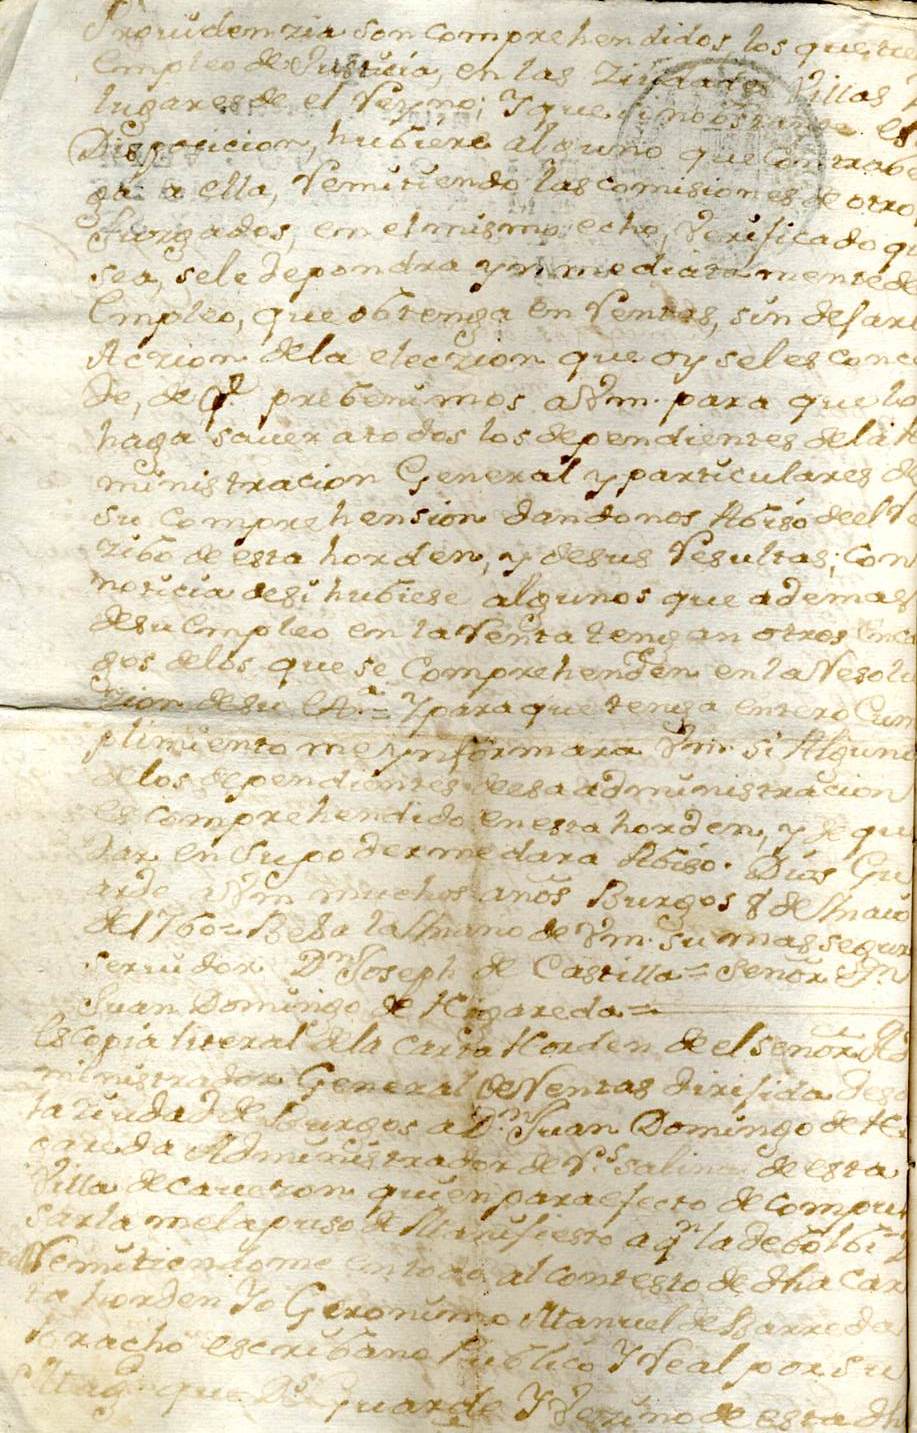 Prouidenzia son comprehendidos, los que, tie
Empleo de Justicia, en las Ziudades Villas Y
lugares de el Reyno; Y que si no obstante es
Disposicion, hubiere alguno que contrabe
ga a ella, Remitiendo las comisiones de otro
Juzgados, en el mismo echo, Verificado q
sea, sele depondra ynmediatamente de
Empleo, que obtenga en Rentas, sin dejar
Aczion de la eleczion que oy seles conc
de, de q.e prebenimos a Vm. para que lo
haga sauer a todos los dependientes de la A
ministracion General y particulares de
su comprehension dandonos Abiso de el R
zibo de esta horden, y desus Resultas; con
noticia desi hubiese algunos que ademas
desu Empleo en la Renta tengan otros Enca
gos delos que se Comprehenden en la Resolu
zion de su = Y para que tenga entero Cum
plimiento me ynformara Vm. si Alguno
de los dependientes de esa administracion
es comprehendido en esta horden, y de que
dar en su poder me dara Abiso. Dios Gu
arde a Vm muchos años Burgos 8 de Maio
del 760 = Besa la Mano de Vm. su mas segur
seruidor Dn Joseph de Castilla = Señor Dn
Juan Domingo de Higareda =
Es copia literal dela carta Horden de el señor Ad
ministrador General de Rentas dirijida desd
la ziudad de Burgos a Dn Juan Domingo de Hi
gareda Administrador de Rs salinas de esta
Villa de cauezon quien para efecto de compul
sarla mela puso de Manifiesto a q.n la debolbi Y
Remitiendome en todo al contesto de dha car
ta horden Yo Geronimo Manuel de Barreda
escribano Publico Y Real por su
Mag.d que Ds Guarde Y Vezino de esta dh